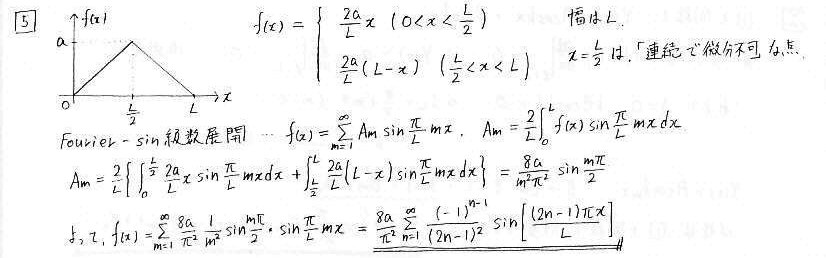 5 f(x) f(x) = { 2a/L x (0<x<L/2) 幅はL.
a 2a/L (L-x) (L/2<x<L) x=L/2 は、「連続で微分不可」な点.
0 L/2 L x
Fourier-sin 級数展開 … f(x) = Σ_{m=1}^{∞} Am sin π/L mx. Am = 2/L ∫_0^L f(x) sin π/L mx dx
Am = 2/L { ∫_0^{L/2} 2a/L x sin π/L mx dx + ∫_{L/2}^L 2a/L (L-x) sin π/L mx dx } = 8a/m²π² sin mπ/2
よって, f(x) = Σ_{m=1}^{∞} 8a/π² 1/m² sin mπ/2 · sin π/L mx = 8a/π² Σ_{n=1}^{∞} (-1)^{n-1}/(2n-1)² sin[(2n-1)πx/L]